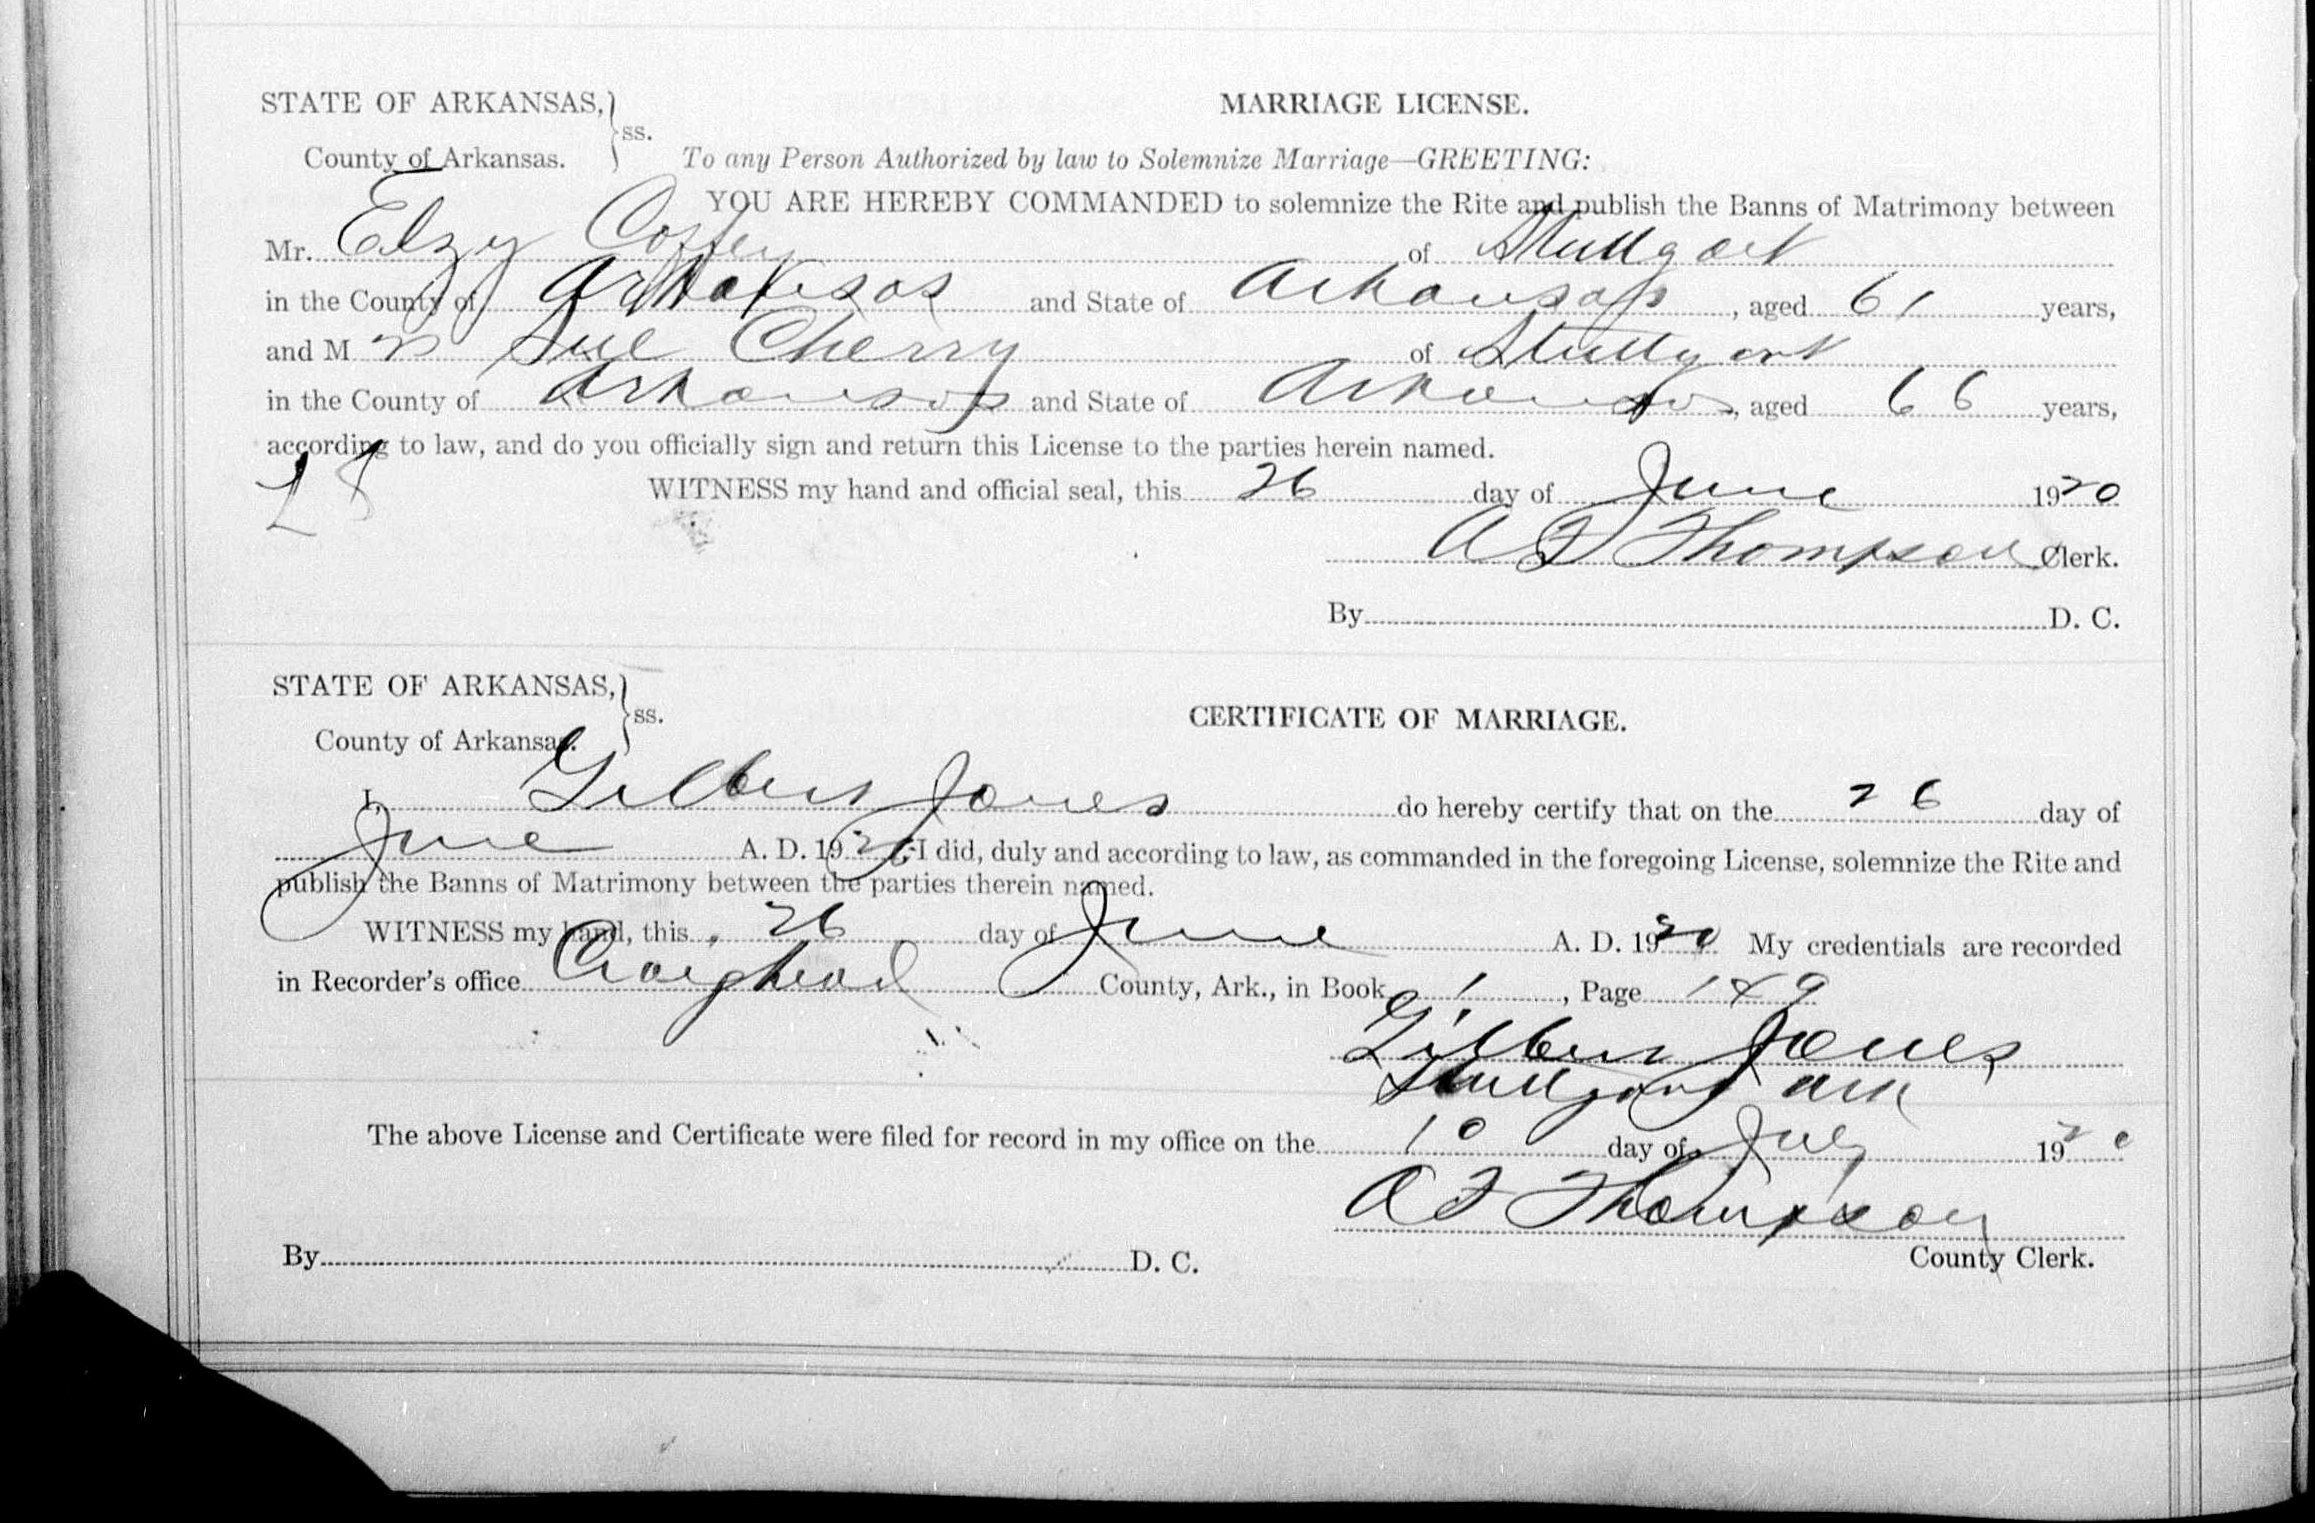 STATE OF ARKANSAS,
ss.
County of Arkansas.
MARRIAGE LICENSE.
To any Person Authorized by law to Solemnize Marriage—GREETING:
YOU ARE HEREBY COMMANDED to solemnize the Rite and publish the Banns of Matrimony between
Mr. Elzy Coffey of Stuttgart
in the County of Arkansas and State of Arkansas, aged 61 years,
and M rs Sue Cherry of Stuttgart
in the County of Arkansas and State of Arkansas, aged 66 years,
according to law, and do you officially sign and return this License to the parties herein named.
L S
WITNESS my hand and official seal, this 26 day of June 1920
A F Thompson Clerk.
By D. C.
STATE OF ARKANSAS,
ss.
County of Arkansas.
CERTIFICATE OF MARRIAGE.
I, Gilbert Jones do hereby certify that on the 26 day of
June A. D. 192 I did, duly and according to law, as commanded in the foregoing License, solemnize the Rite and
publish the Banns of Matrimony between the parties therein named.
WITNESS my hand, this 26 day of June A. D. 1920 My credentials are recorded
in Recorder's office Craighead County, Ark., in Book 1, Page 189
Gilbert Jones
Stuttgart Ark
The above License and Certificate were filed for record in my office on the 10 day of July 1920
A F Thompson
County Clerk.
By D. C.